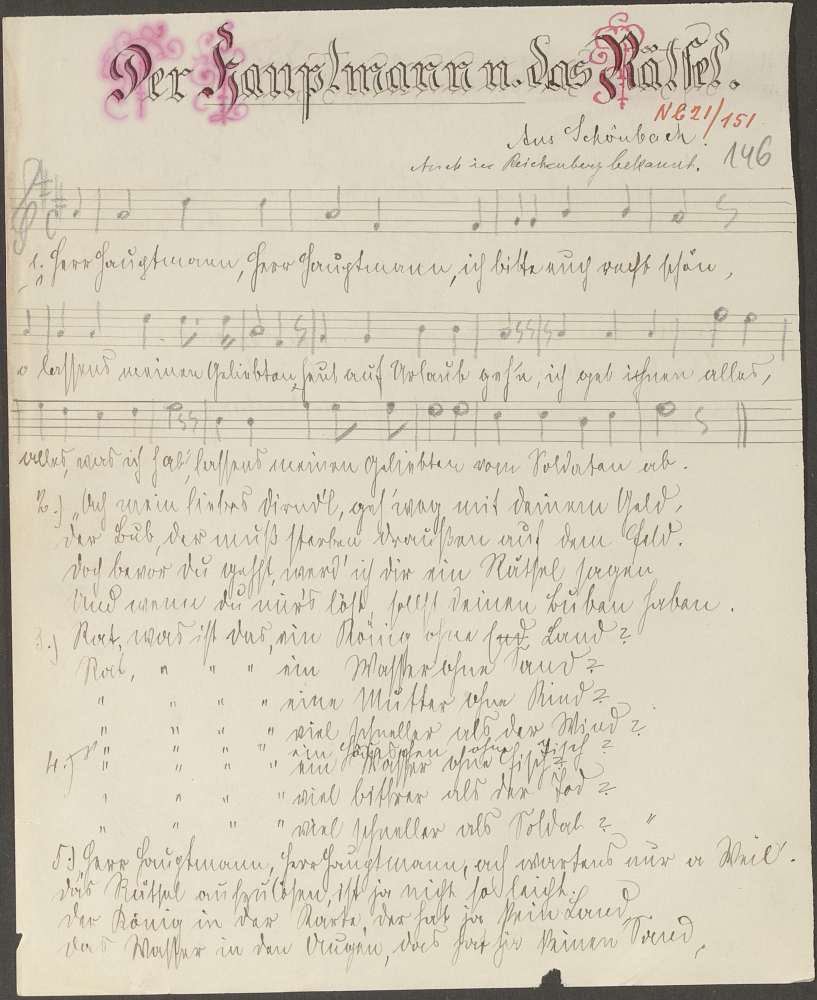 Der Hauptmann u. das Rätsel.
NL21/151
Aus Schönbach.
Auch in Reichenberg bekannt.
146
1. Herr Hauptmann, Herr Hauptmann, ich bitte euch recht schön,
o lassens meinen Geliebten, heut auf Urlaub geh'n, ich geb ihnen alles,
alles, was ich hab', lassens meinen Geliebten vom Soldaten ab.
2.) „Ach mein liebes Dirnd'l, geh' weg mit deinem Geld,
der Bub, der muß sterben draußen auf dem Feld.
Doch bevor du gehst, werd' ich dir ein Rätsel sagen
Und wenn du mir's löst, sollst deinen Buben haben.
3.) Rat, was ist das, ein König ohne Land?
Rat, " " " ein Wasser ohne Sand?
" " " " eine Mutter ohne Kind?
" " " " viel schneller als der Wind?
4.) " " " " ein ohne Tisch?
" " " " ein Wasser ohne Fisch?
" " " " viel bittrer als der Tod?
" " " " viel schneller als Soldat? "
5.) Herr Hauptmann, Herr Hauptmann, ach wartens nur a Weil'.
das Rätsel aufzulösen, ist ja nicht so leicht.
Der König in der Karte, der hat ja kein Land,
das Wasser in den Augen, das hat ja keinen Sand,